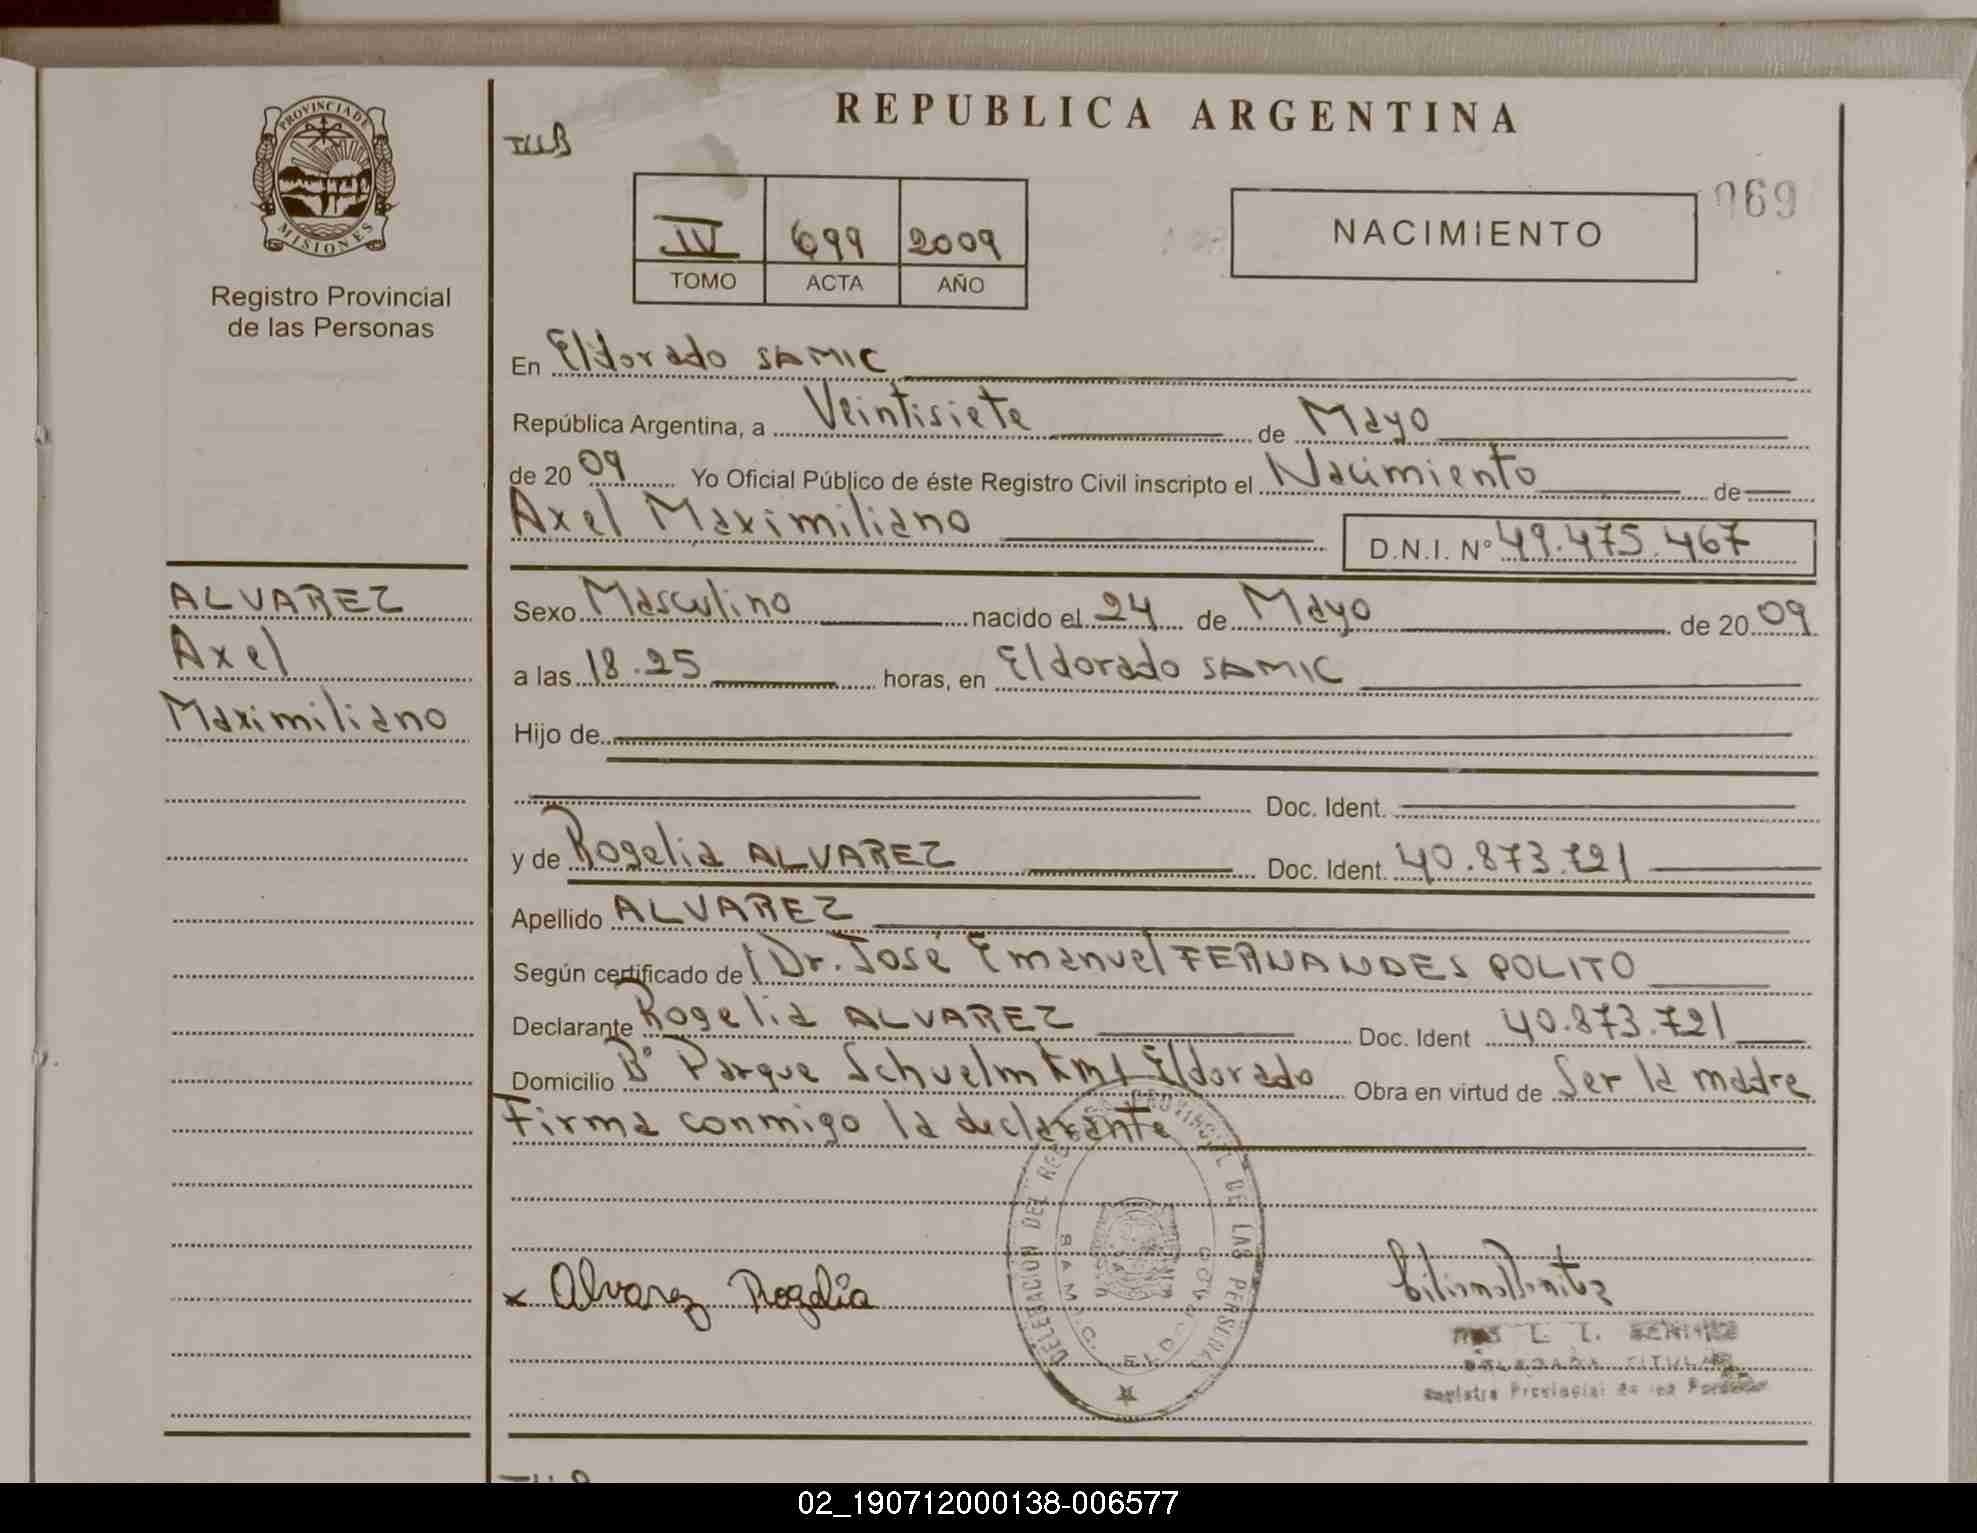 REPUBLICA ARGENTINA
PROVINCIA DE
MISIONES
Registro Provincial
de las Personas
069
IV 699 2009
TOMO ACTA AÑO
NACIMIENTO
En Eldorado SAMIC
República Argentina, a Veintisiete de Mayo
de 20 09 Yo Oficial Público de éste Registro Civil inscripto el Nacimiento de
Axel Maximiliano D.N.I. N° 49.475.467
ALVAREZ
Axel
Maximiliano
Sexo Masculino nacido el 24 de Mayo de 20 09
a las 18.25 horas, en Eldorado SAMIC
Hijo de
Doc. Ident.
y de Rogelia ALVAREZ Doc. Ident. 40.873.721
Apellido ALVAREZ
Según certificado de Dr. José Emanuel FERNANDES POLITO
Declarante Rogelia ALVAREZ Doc. Ident 40.873.721
Domicilio B° Parque Schuelm Km 1 Eldorado Obra en virtud de Ser la madre
Firma conmigo la declarante
DELEGACION DEL REGISTRO PROVINCIAL DE LAS PERSONAS
S.A.M.I.C. ELDORADO
x Alvarez Rogelia
DELEGADA TITULAR
Registro Provincial de las Personas
02_190712000138-006577